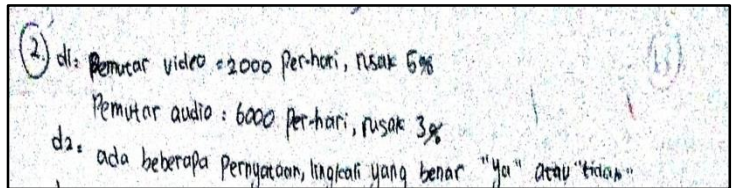 2. d1: Pemutar video = 2000 Per-hari, rusak 5%
Pemutar audio : 6000 Per-hari, rusak 3%
d2: ada beberapa Pernyataan, lingkari yang benar "ya" atau "tidak"